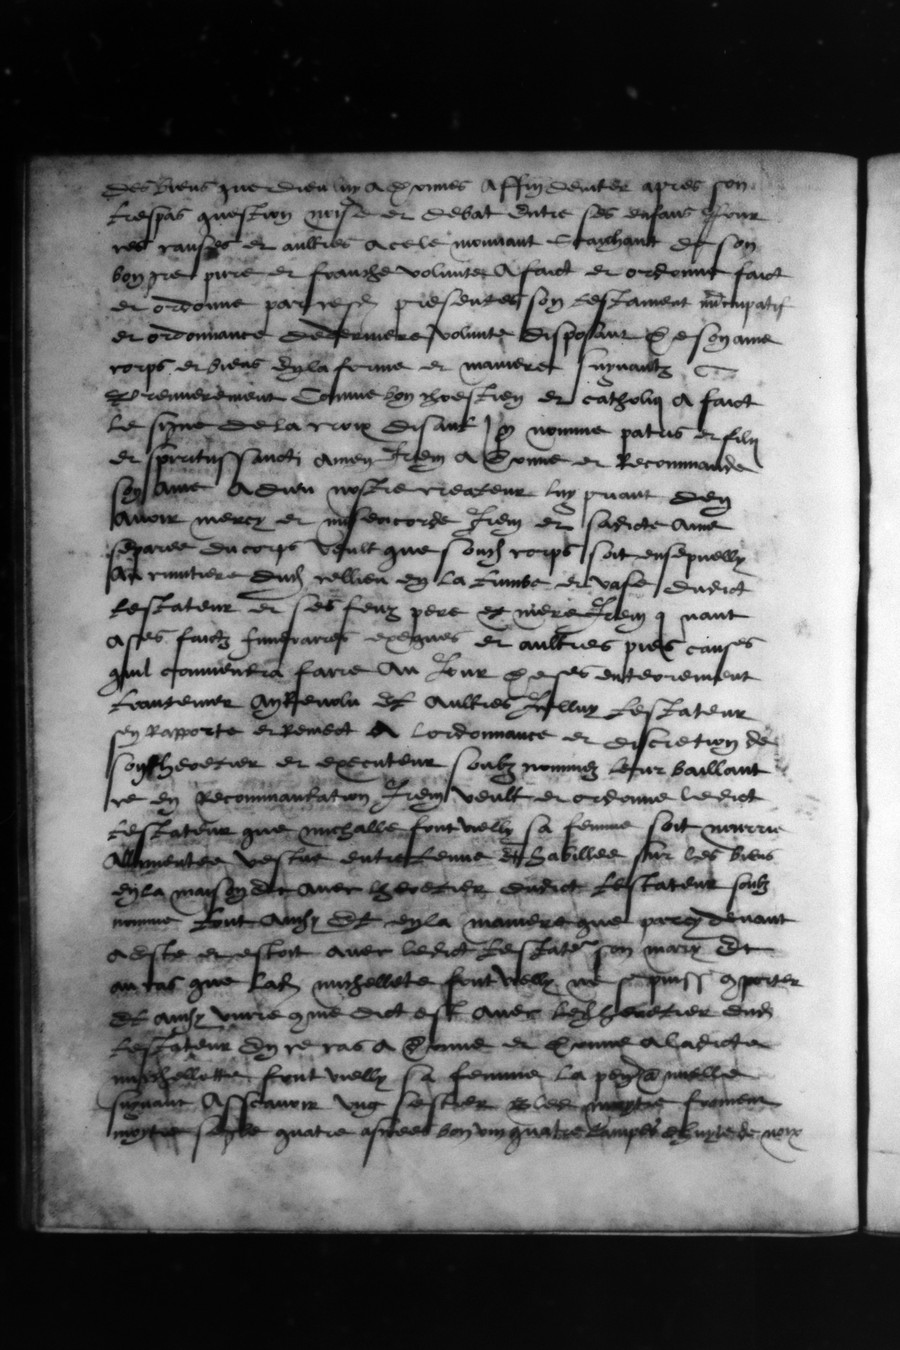 des biens que dieu luy a donnes affin deviter apres son
trespas question noise et debat entre ses enfans pour
ces causes et aultres a ce le mouvant et taichant de son
bon gre pure et franche volunte a faict et ordonne faict
et ordonne par ces presentes son testament nuncupatif
et ordonnance de derniere volunte disposant de son ame
corps et biens en la forme et maniere suyvantz
Et premierement Comme bon chrestien et catholiq a faict
le signe de la croix disant In nomine patris et filii
et spiritussancti amen Item a donne et Recommande
son ame a dieu nostre createur luy priant den
avoir mercy et misericorde Item et sadicte ame
separee du corps veult que sond corps soit ensepvelly
Au cimitiere dud cellieu en la tumbe et vase dudict
testateur et ses feuz pere et mere Item quant
a ses faictz funeraires exeques et aultres pies causes
quil conviendra faire Au Jour de ses enterrement
quarantener An Revolu et aultres Icelluy testateur
sen Rapporte et Remect A Lordonnance et discretion de
son heretier et executeur soubz nommez leur baillant
ce en Recommandation Item veult et ordonne ledict
testateur que michalle fontvielly sa femme soit nourrie
Allimentee vestue entretenue et habillee sur les biens
en la maison et avec lheretier dudict testateur soubz
nomme tout Ainsy et en la maniere que par cy devant
a este et estoit avec ledict testateur son mary Et
au cas que lad michellete fontvielly ne se puiss comporter
et ainsy vivre comme dict est avec led heretier dud
testateur En ce cas A donne et donne a ladicte
michellette fontvielly sa femme la pension annuelle
suyvant Asscavoir ung sestier bled moytie froment
moytie seigle quatre asnees bon vin quatre de huyle de noix